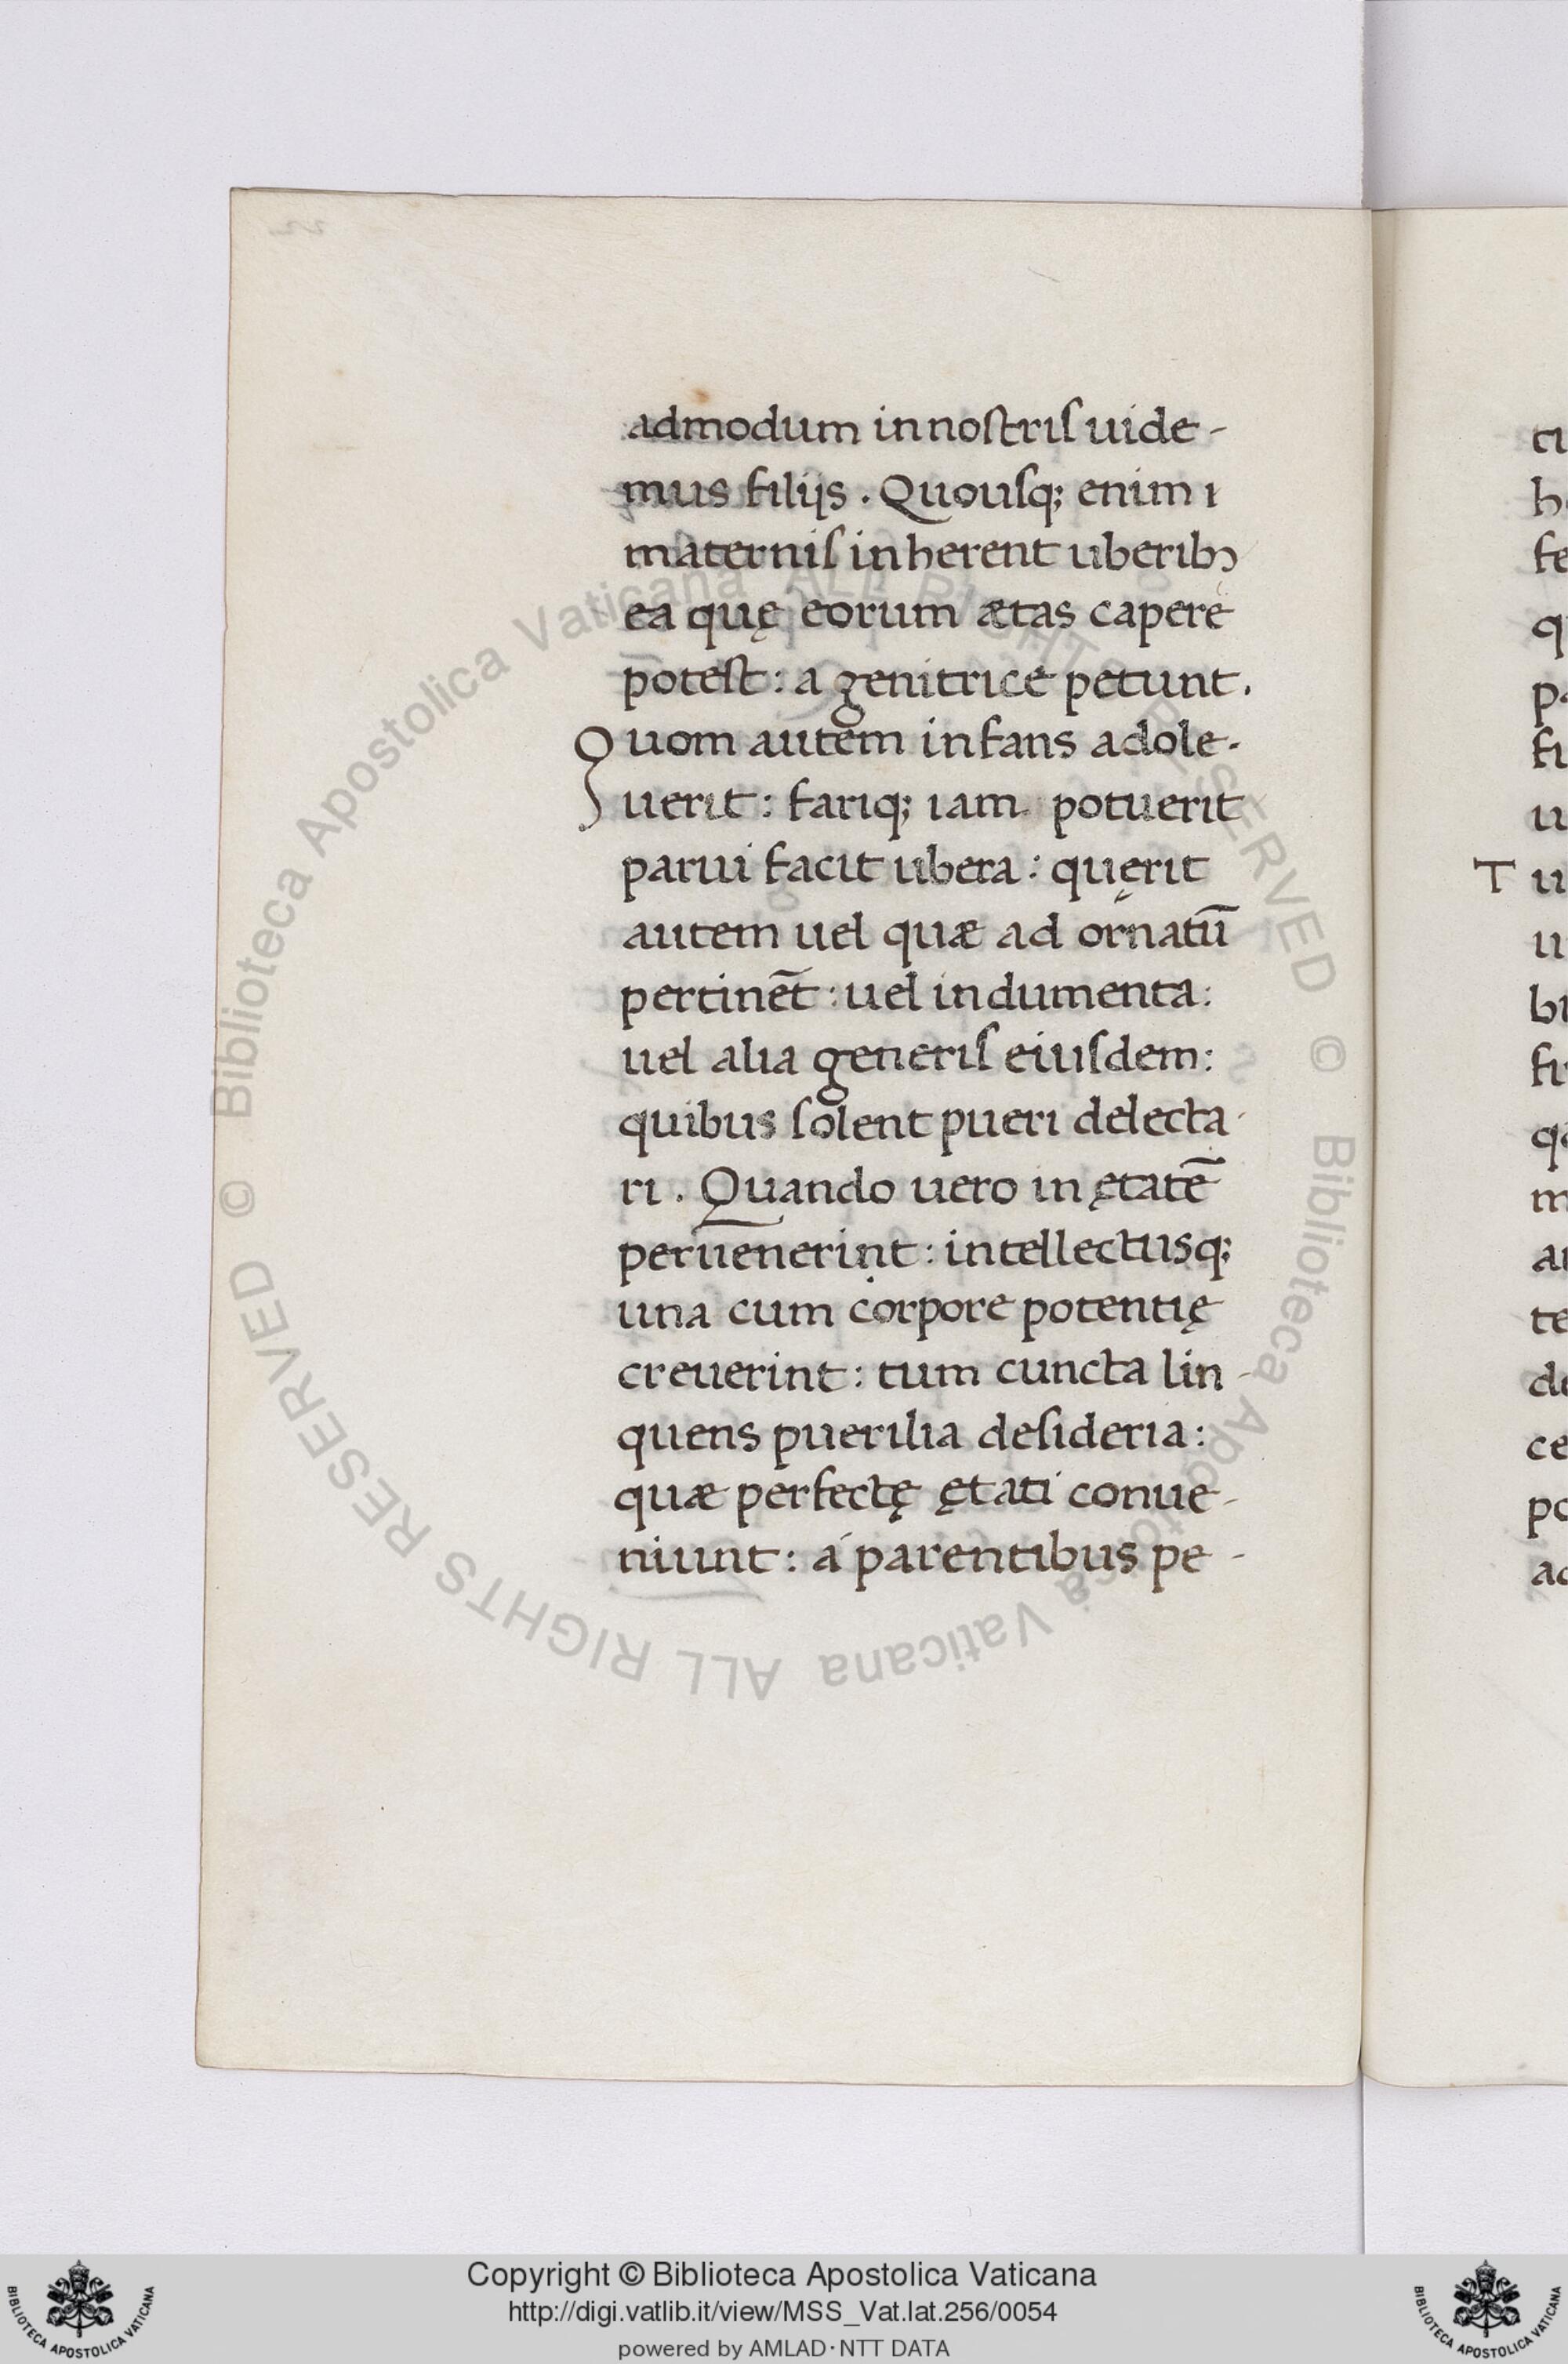 admodum in nostris uide-
mus filijs . Quousq; enim ı
maternis inherent uberibꝰ
ea quę eorum ætas capere
potest : a genitrice petunt.
Quom autem infans adole-
uerit : fariq; iam potuerit
parui facit ubera : quęrit
autem uel quæ ad ornatū
pertinēt : uel indumenta :
uel alia generis eiusdem :
quibus solent pueri delecta-
ri . Quando uero in ętatē
peruenerint : intellectusq;
una cum corpore potentię
creuerint : tum cuncta lin-
quens puerilia desideria :
quæ perfectę ętati conue-
niunt : á parentibus pe-
T
© Biblioteca Apostolica Vaticana ALL RIGHTS RESERVED
© Biblioteca Apostolica Vaticana ALL RIGHTS RESERVED
Copyright © Biblioteca Apostolica Vaticana
http://digi.vatlib.it/view/MSS_Vat.lat.256/0054
powered by AMLAD·NTT DATA
BIBLIOTECA APOSTOLICA VATICANA
BIBLIOTECA APOSTOLICA VATICANA